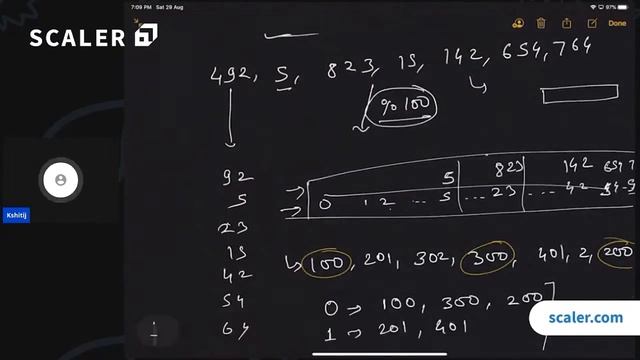 7:09 PM Sat 29 Aug
97%
Done
SCALER
492, 5, 823, 15, 142, 654, 764
% 100
92
5
23
15
42
54
64
5 823 142 654
0 1 2 ... 5 ... 23 ... 42
100, 201, 302, 300, 401, 2, 200
0 → 100, 300, 200
1 → 201, 401
Kshitij
scaler.com